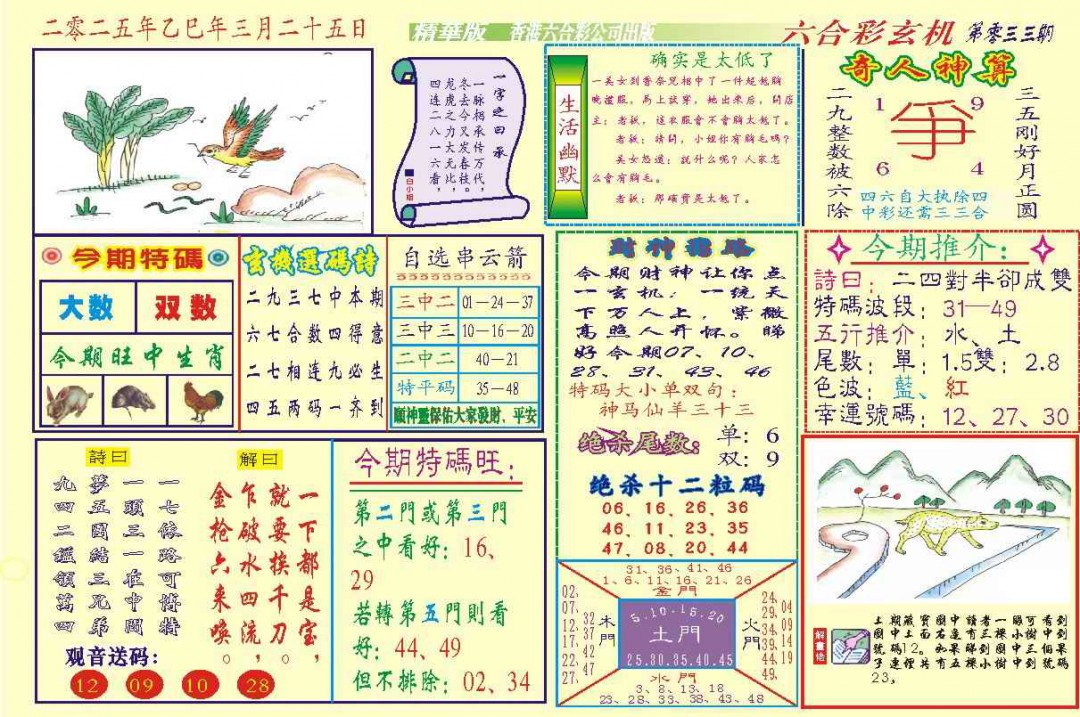 二零二五年乙巳年三月二十五日
精華版 香港六合彩公司出版
六合彩玄机 第零三三期
一字之曰：承
一脉相承传万代，
冬去今又发春枝，
龙虎之力大无比，
四连二八一六看。
白小姐
生活幽默
确实是太低了
一美女到香奈儿相中了一件超低胸
晚禮服，馬上試穿，她出來后，問店
主：老板，這衣服會不會胸太低了。
老板：請問，小姐你有胸毛嗎？
美女怒道：説什么呢？人家怎
么會有胸毛。
老板：那確實是太低了。
奇人神算
二九整数被六除
三五刚好月正圆
1 9
爭
6 4
四六自大执除四
中彩还需三三合
今期特碼
大数 双数
今期旺中生肖
玄機選碼詩
二九三七中本期
六七合数四得意
二七相连九必生
四五两码一齐到
自选串云箭
三中二 01－24－37
三中三 10－16－20
二中二 40－21
特平码 35－48
願神靈保佑大家發財、平安
財神密路
今期财神让你点
一玄机：一统天
下万人上，紫微
高照人开怀。睇
好今期07、10、
28、31、43、46
特码大小单双句：
神马仙羊三十三
绝杀尾数：
单：6
双：9
绝杀十二粒码
06、16、26、36
46、11、23、35
47、08、20、44
今期推介：
詩曰：二四對半卻成雙
特碼波段：31—49
五行推介：水、土
尾數：單：1.5雙：2.8
色波：藍、紅
幸運號碼：12、27、30
詩曰
一七依路可博特
一頭三一在中間
夢五图結三兄弟
九四二鑑領萬四
解曰
一下都是宝，
就要挨千刀。
乍破水四流，
金枪六来唤。
观音送码：
12 09 10 28
今期特碼旺：
第二門或第三門
之中看好：16、
29
若轉第五門則看
好：44、49
但不排除：02、34
31、36、41、46
1、6、11、16、21、26
金門
02、07、12、17、22、27、
32、37、42、47
木門
5.10.15.20
土門
25.30.35.40.45
火門
24、29、34、39、44、49、
04、09、14、19、
水門
3、8、13、18
23、28、33、38、43、48
解畫信
上期藏寶圖中讀者一睇可看到
圖中上面右邊有三棵小樹中到
號碼12。如果睇到圖中三個果
子連徑共有五棵小樹中到號碼
23，